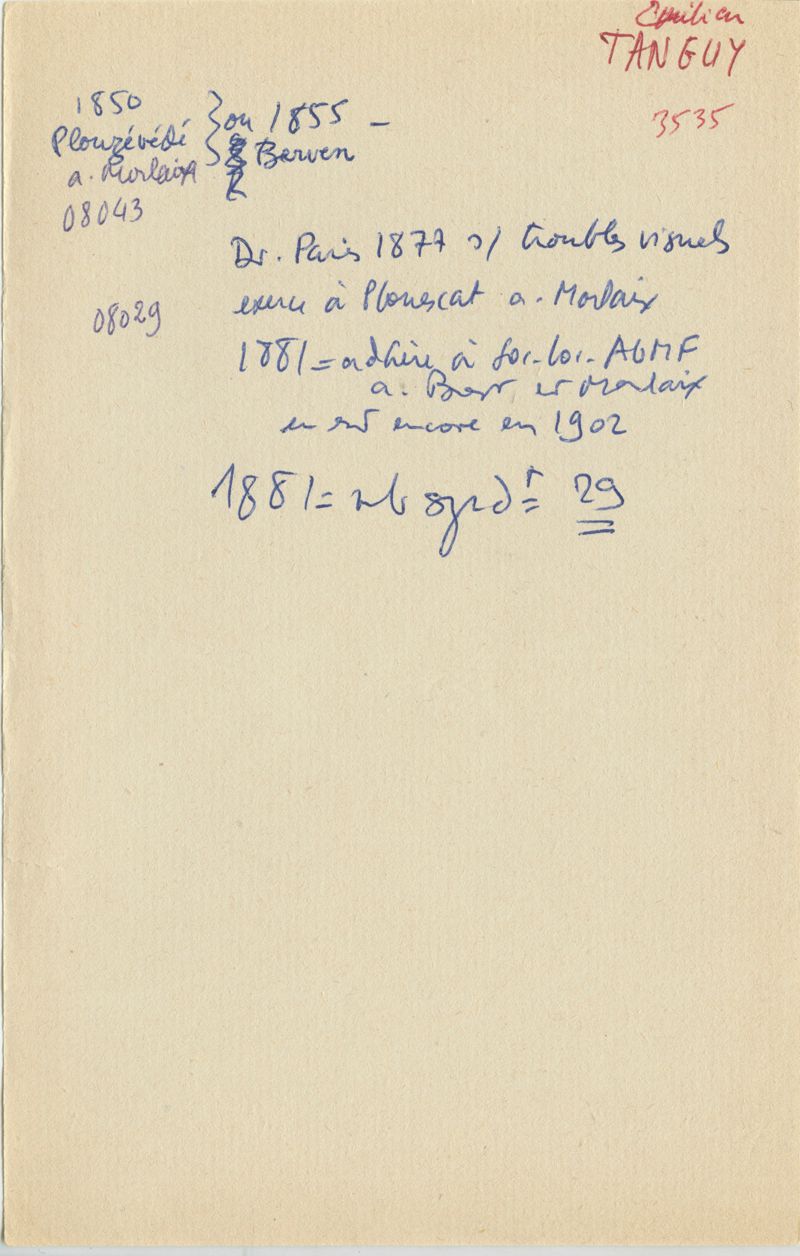 Emilien
TANGUY
3535
1850
Plouzévédé
a. Morlaix
08043
ou 1855 -
Berven
Dr. Paris 1877 s/ troubles visuels
exerce à Plouescat a. Morlaix
08029
1881 = adhère à Soc. loc. AGMF
a. Brest et Morlaix
en est encore en 1902
1881 = nb synd^t = 29